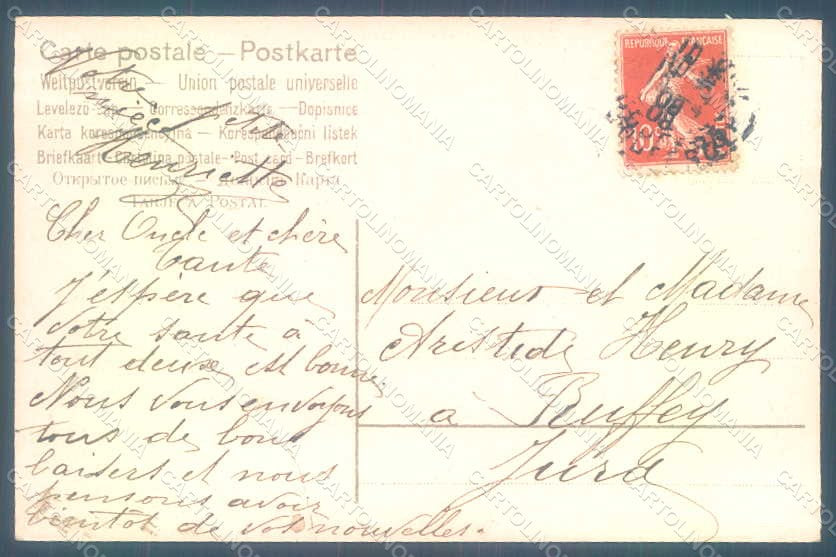 Carte postale – Postkarte
Weltpostverein — Union postale universelle
Levelező — Correspondenzkarte — Dopisnice
Karta korespondencyjna — Korespondenční lístek
Briefkaart — postale — Post card — Brefkort
Открытое письмо
TARJETA POSTAL
Votre petite
nièce
Henriette
Cher Oncle et chère
tante
J'espère que
votre santé à
tout deux est bonne
Nous vous envoyons
tous de bons
baisers et nous
pensons avoir
bientôt de vos nouvelles.
REPUBLIQUE FRANÇAISE
10
Monsieur et Madame
Aristide Henry
à Ruffey
Jura
CARTOLINOMANIA